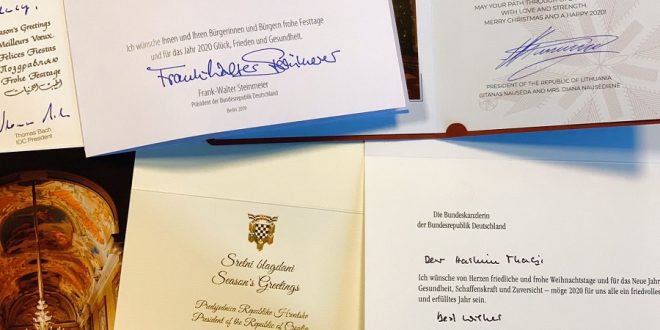 Season's Greetings
Meilleurs Voeux
Felices Fiestas
Поздравляю
Frohe Festtage
Thomas Bach
IOC President
Ich wünsche Ihnen und Ihren Bürgerinnen und Bürgern frohe Festtage
und für das Jahr 2020 Glück, Frieden und Gesundheit.
Frank-Walter Steinmeier
Frank-Walter Steinmeier
Präsident der Bundesrepublik Deutschland
Berlin 2019
MAY YOUR PATH THROUGH
WITH LOVE AND STRENGTH.
MERRY CHRISTMAS AND A HAPPY 2020!
PRESIDENT OF THE REPUBLIC OF LITHUANIA
GITANAS NAUSĖDA AND MRS. DIANA NAUSĖDIENĖ
Sretni blagdani
Season's Greetings
Predsjednica Republike Hrvatske
President of the Republic of Croatia
Die Bundeskanzlerin
der Bundesrepublik Deutschland
Dear Hashim Thaçi,
Ich wünsche von Herzen friedliche und frohe Weihnachtstage und für das Neue Jahr
Gesundheit, Schaffenskraft und Zuversicht – möge 2020 für uns alle ein friedvolles
und erfülltes Jahr sein.
best wishes